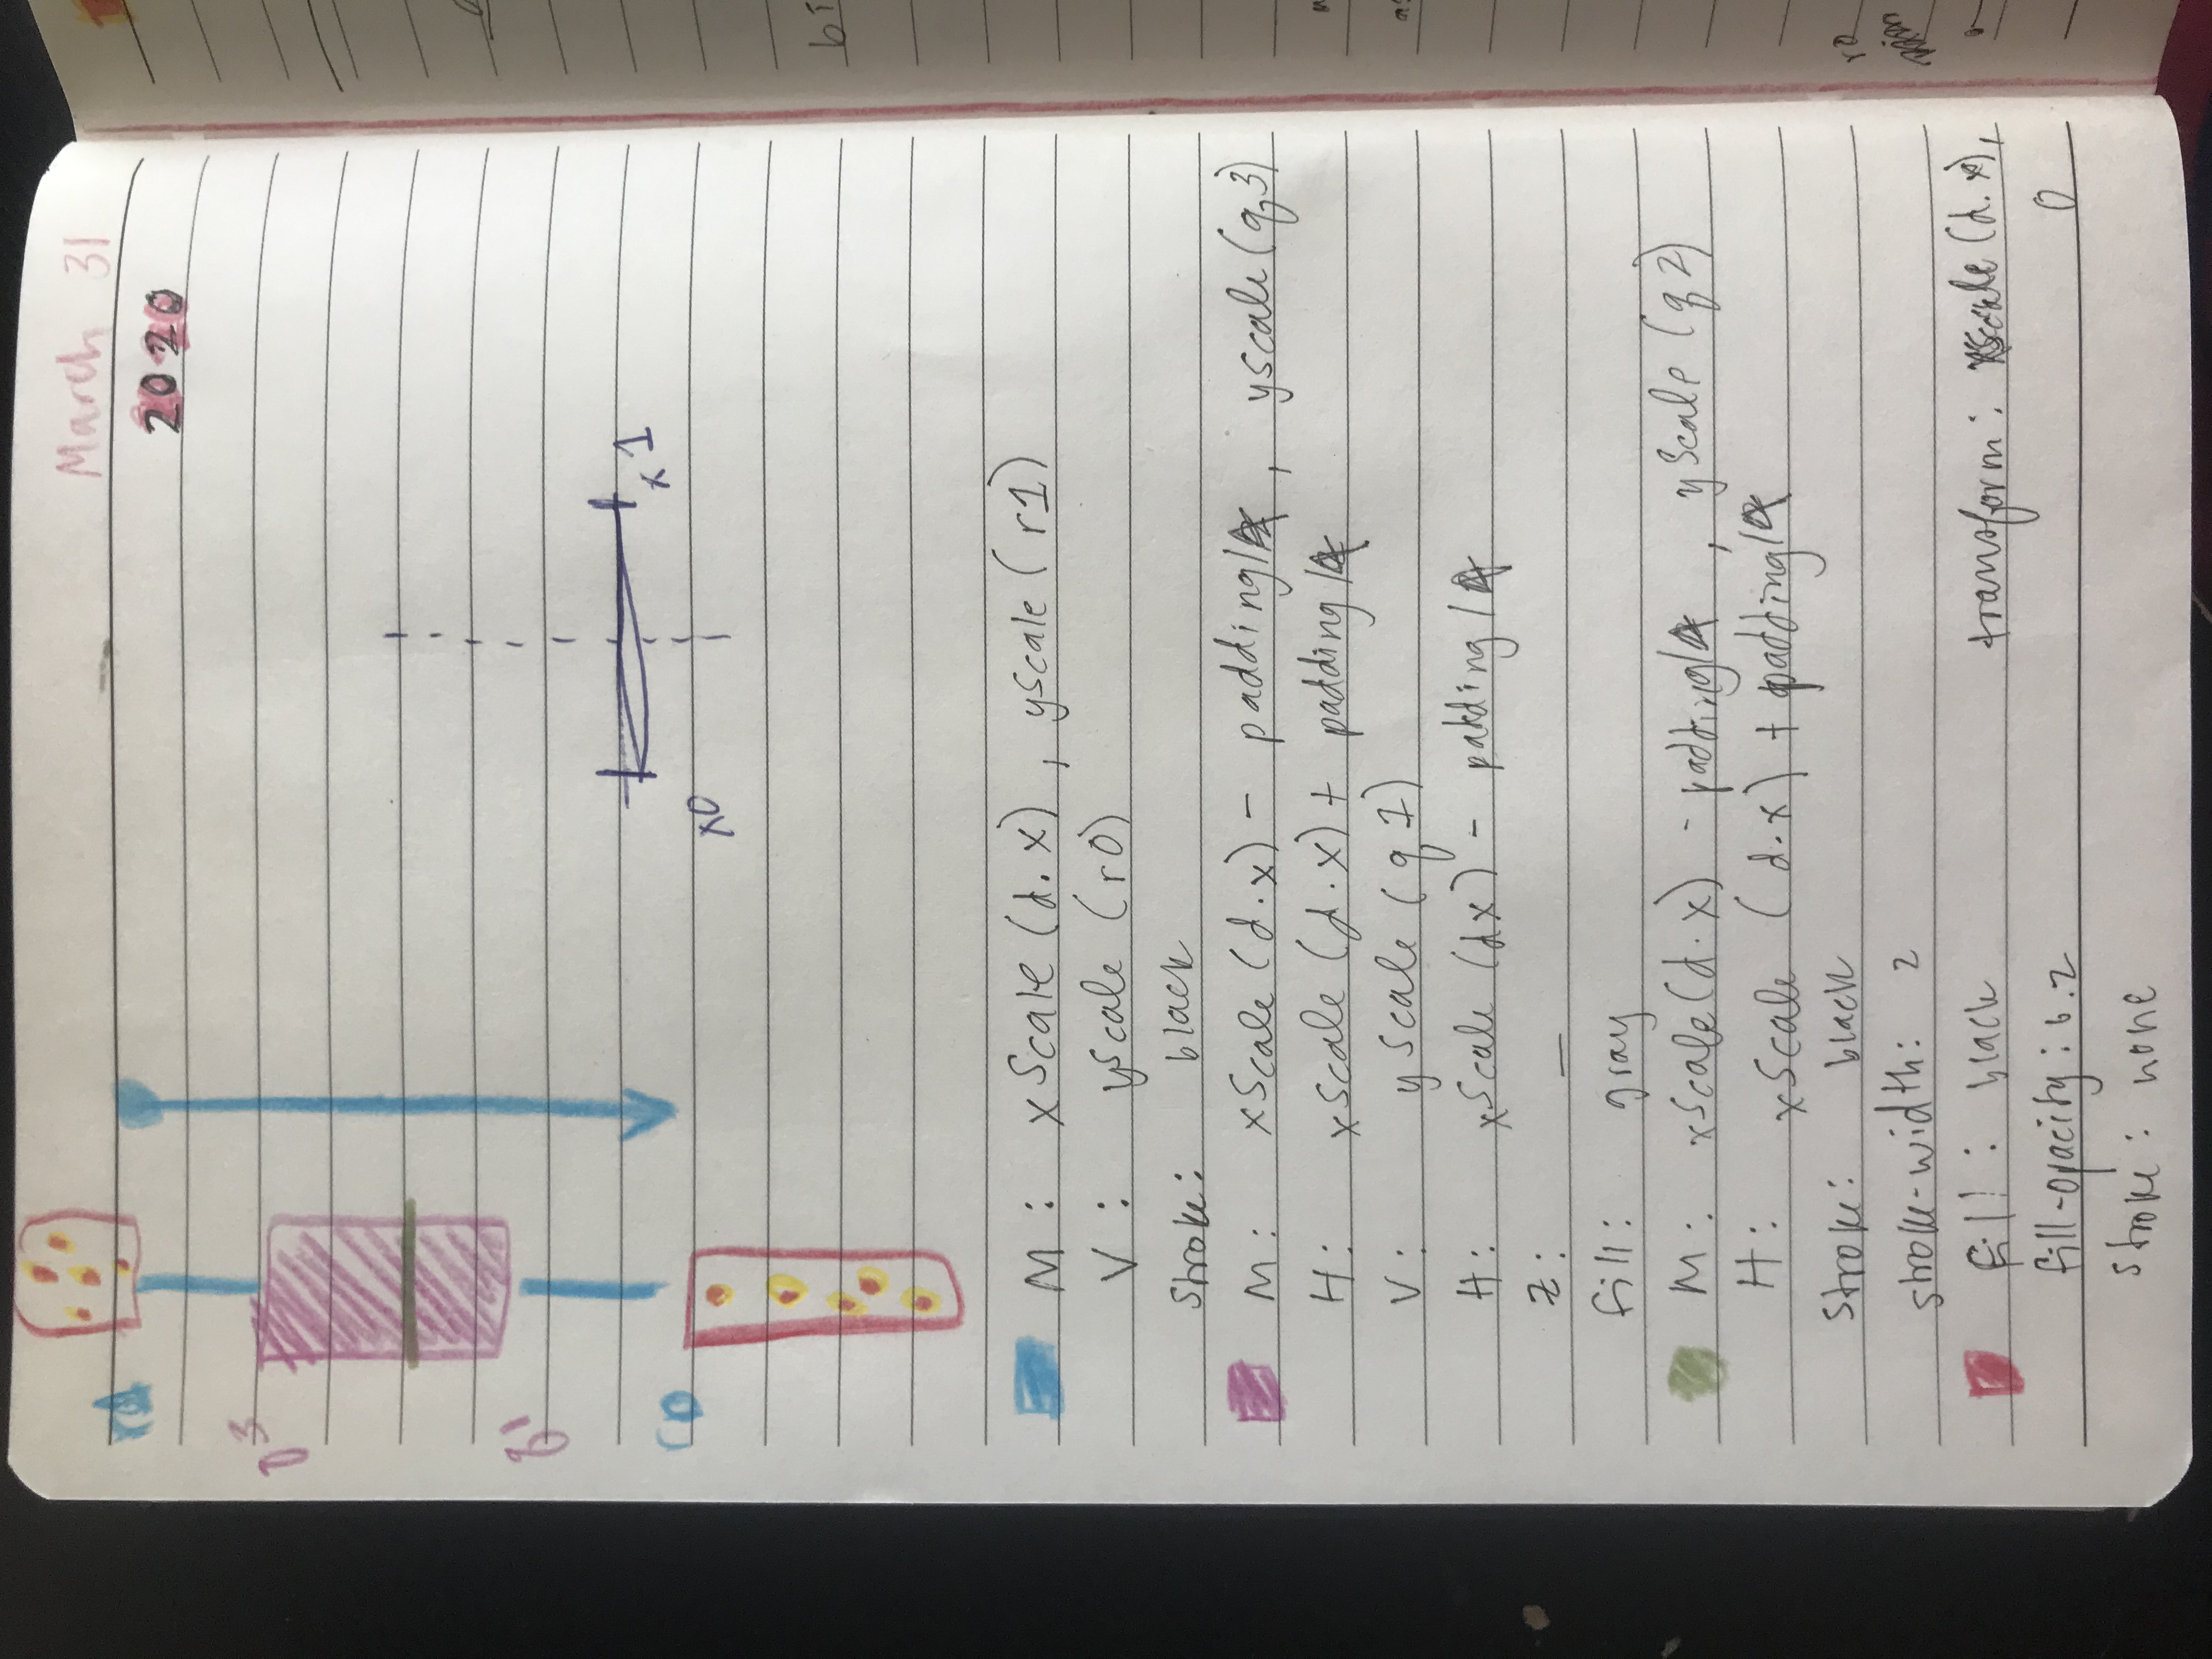 March 31
2020
r1
q3
q1
r0
x0
x1
M: xScale (d.x), yscale (r1)
V: yScale (r0)
Stroke: black
M: xScale (d.x) - padding/ , yscale (q3)
H: xScale (d.x) + padding/
V: yscale (q1)
H: xScale (dx) - padding/
Z: —
fill: gray
M: xScale (d.x) - padding/ , yScale (q2)
H: xScale (d.x) + padding/
Stroke: black
Stroke-width: 2
fill: black transform: xscale (d.x),
fill-opacity: 0.2 0
Stroke: none